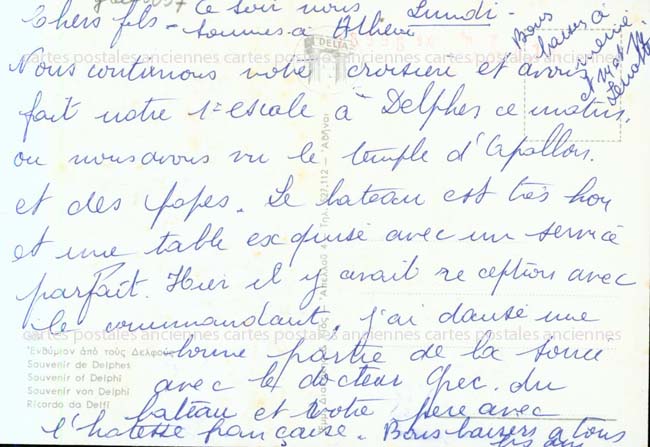 Ce soir nous Lundi -
Chers fils - sommes à Athènes
Nous continuons notre croisière et avons
fait notre 1e escale à Delphes ce matin.
ou nous avons vu le temple d'Apollon.
et des popes. Le bateau est très bon
et une table exquise avec un service
parfait. Hier il y avait reception avec
le commandant, j'ai dansé une
bonne partie de la soirée
avec le docteur Grec. du
bateau et votre père avec
l'hotesse française. Bons baisers a tous
Bons
baisers à
mémé
et
DELTA
cartes postales anciennes cartes postales anciennes cartes postales anciennes
cartes postales anciennes cartes postales anciennes cartes postales anciennes
Ἐνθύμιον ἀπό τούς Δελφούς
Souvenir de Delphes
Souvenir of Delphi
Souvenir von Delphi
Ricordo da Delfi